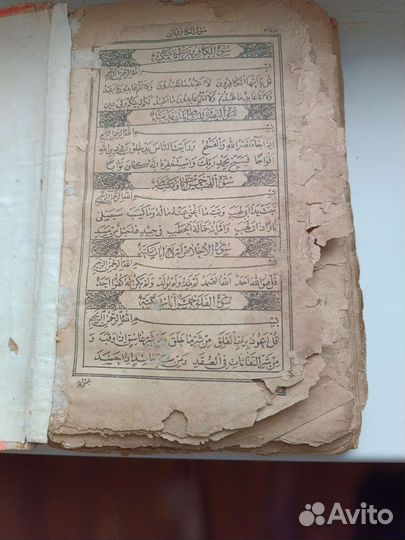 سورة الكافرون
بسم الله الرحمن الرحيم
قل يا ايها الكافرون لا اعبد ما تعبدون ولا انتم عابدون ما اعبد
ولا انا عابد ما عبدتم ولا انتم عابدون ما اعبد لكم دينكم ولى دين
بسم الله الرحمن الرحيم
اذا جاء نصر الله والفتح ورايت الناس يدخلون فى دين الله
افواجا فسبح بحمد ربك واستغفره انه كان توابا
بسم الله الرحمن الرحيم
تبت يدا ابى لهب وتب ما اغنى عنه ماله وما كسب سيصلى
نارا ذات لهب وامراته حمالة الحطب فى جيدها حبل من مسد
سورة الاخلاص اربع ايات مكية
بسم الله الرحمن الرحيم
قل هو الله احد الله الصمد لم يلد ولم يولد ولم يكن له كفوا احد
سورة الفلق خمس ايات مكية
بسم الله الرحمن الرحيم
قل اعوذ برب الفلق من شر ما خلق ومن شر غاسق اذا وقب و
من شر النفاثات فى العقد ومن شر حاسد اذا حسد
Avito